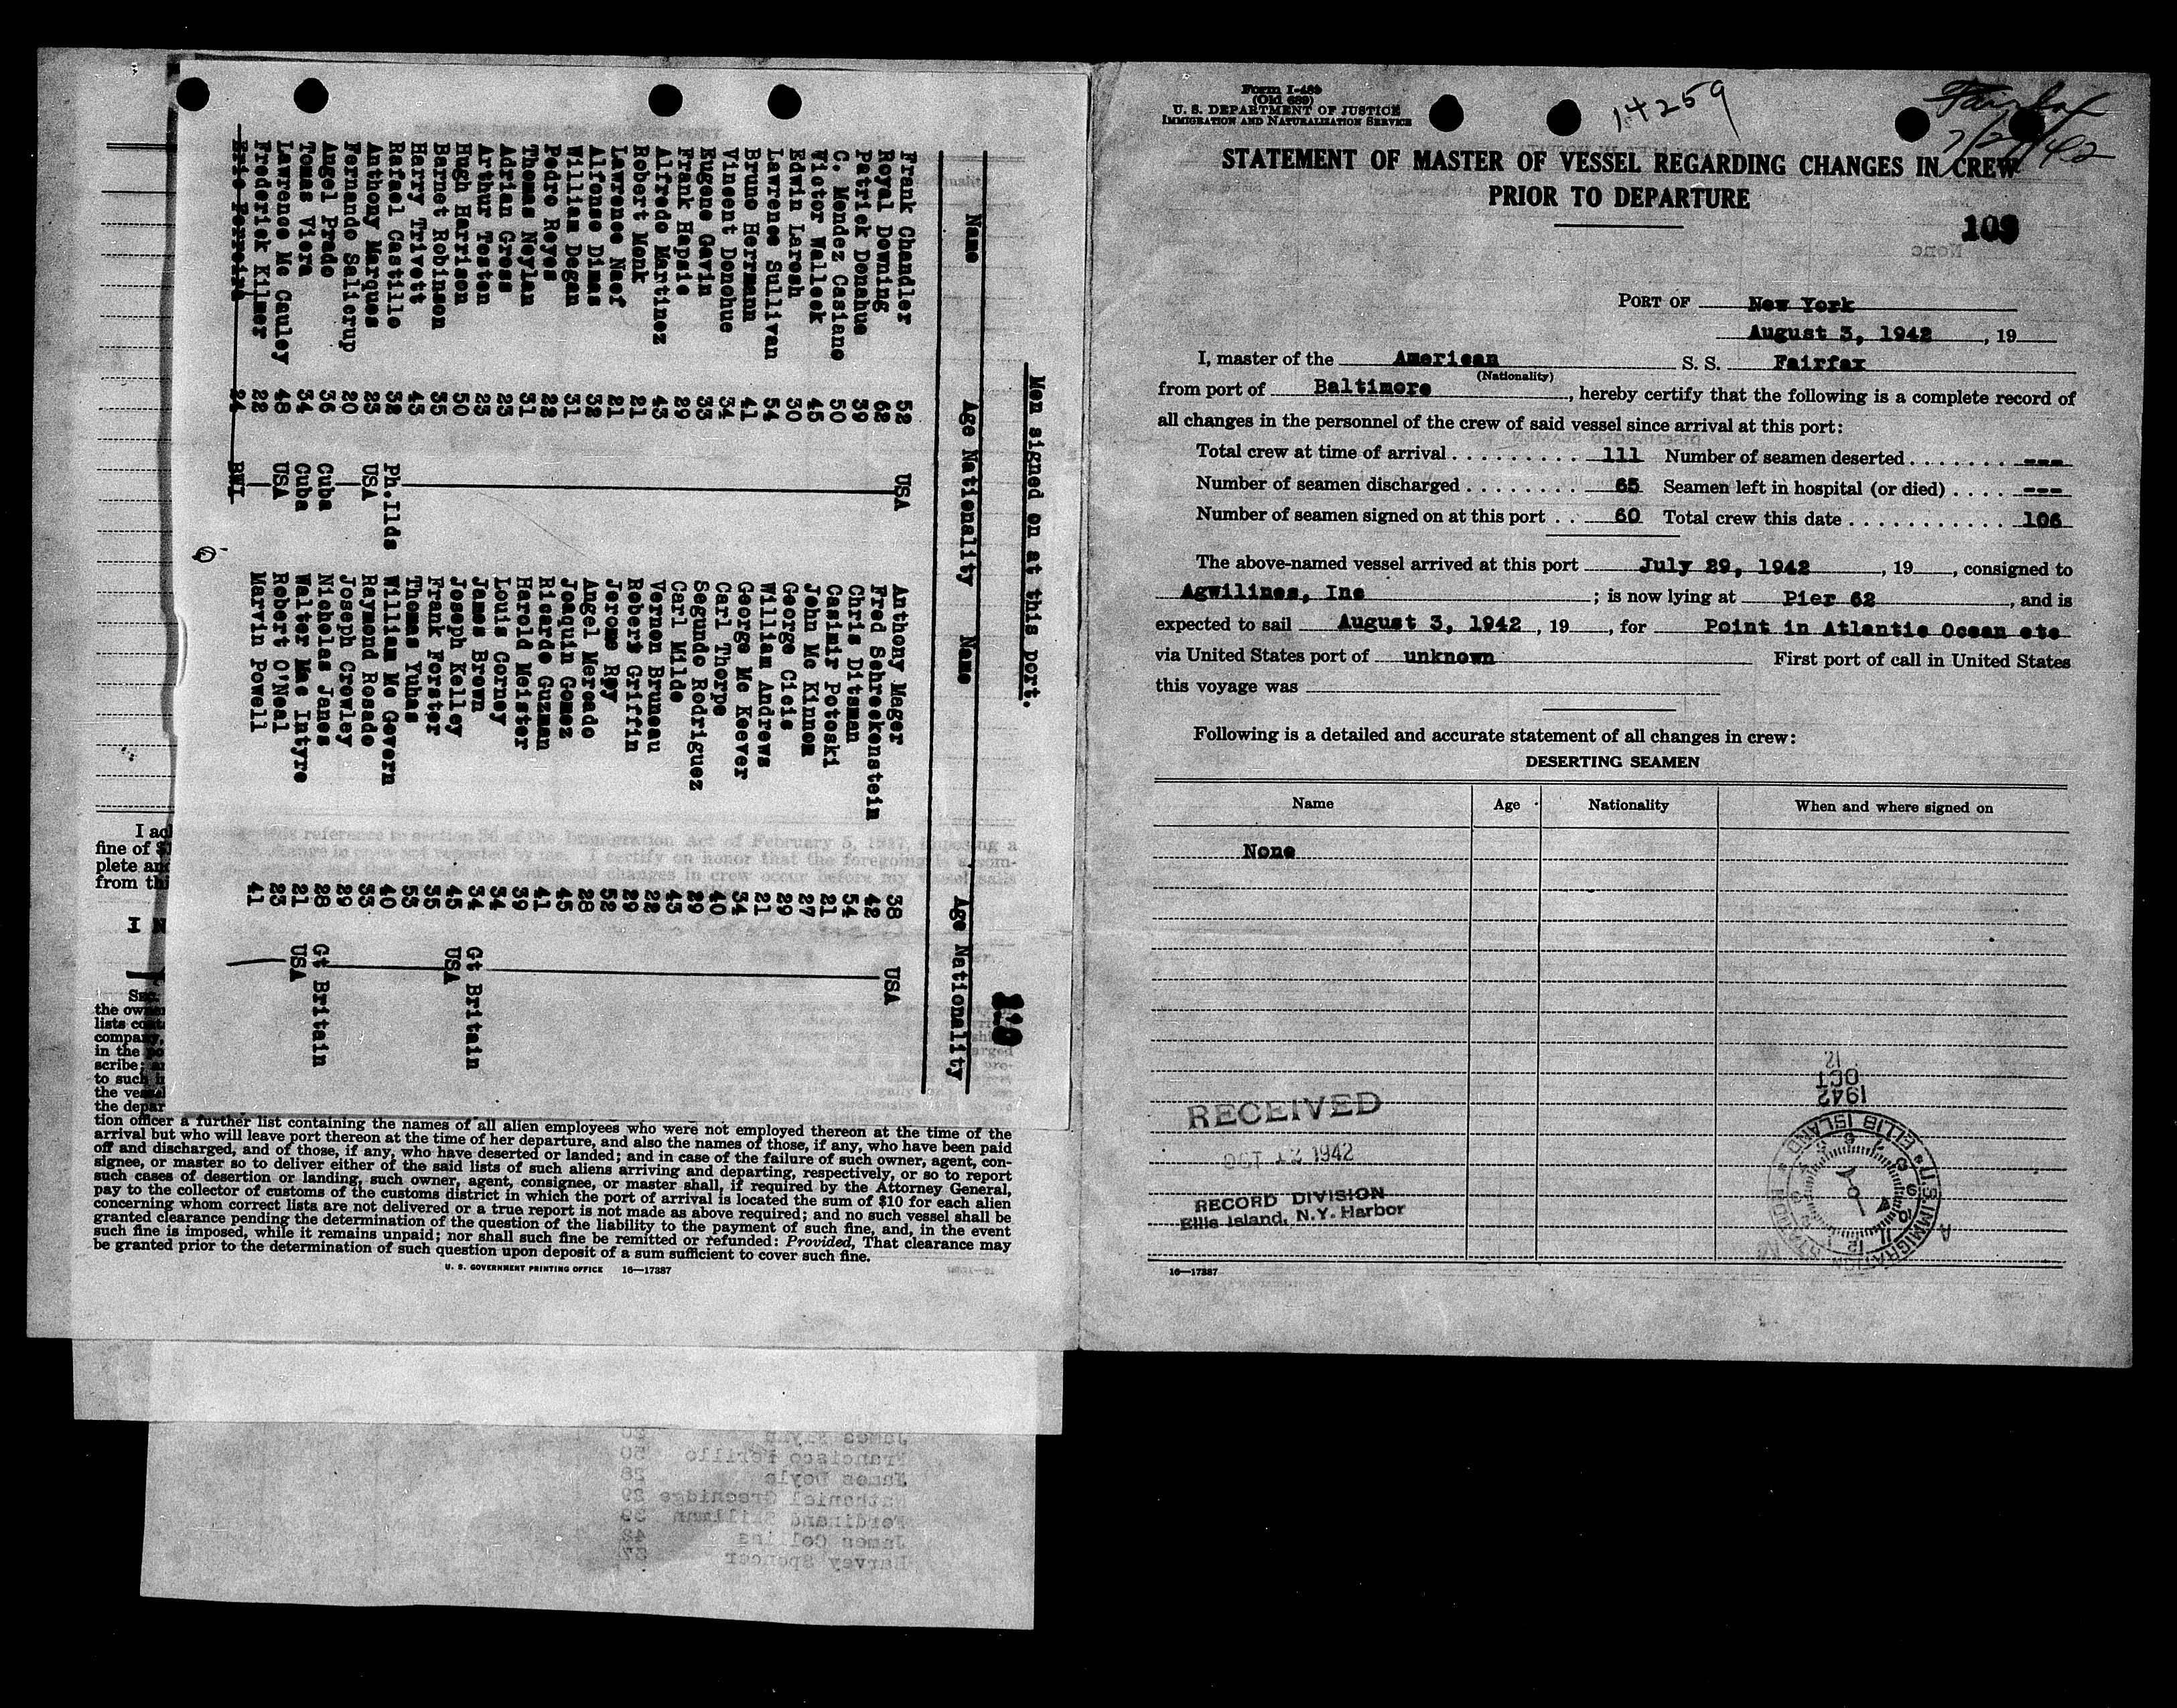 110
Men signed on at this port.
Name Age Nationality Name Age Nationality
Frank Chandler 52 USA Anthony Mager 38 USA
Royal Downing 62 Fred Schreckenstein 42
Patrick Donahue 39 Chris Ditsman 54
C. Mendez Casiano 50 Casimir Poteski 21
Victor Walleck 45 John Mc Kinnon 27
Edwin Larosh 30 George Cicis 29
Lawrence Sullivan 54 William Andrews 21
Bruno Herrmann 41 George Mc Keever 34
Vincent Donohue 34 Carl Thorpe 40
Eugene Gavin 33 Segundo Rodriguez 29
Frank Hapsic 29 Carl Milde 43
Alfredo Martinez 43 Vernon Bruneau 22
Robert Monk 21 Robert Griffin 29
Lawrence Neef 21 Jerome Rey 52
Alfonso Dimas 32 Angel Mercado 28
William Dogan 31 Joaquin Gomez 45
Pedro Reyes 22 Ricardo Guzman 41
Thomas Neylan 31 Harold Meister 39
Adrian Gross 23 Louis Corney 34
Arthur Testen 23 James Brown 34 Gt Britain
Hugh Harrison 50 Joseph Kelley 45 USA
Barnet Robinson 35 Frank Forster 35
Harry Trivett 43 Thomas Yuhas 55
Rafael Castillo 32 Ph.Ilds William Mc Govern 40
Anthony Marques 23 USA Raymond Rosado 33
Fernando Salicrup 20 Joseph Crowley 29
Angel Prado 36 Cuba Nicholas Janes 28 Gt Britain
Tomas Viera 34 Cuba Walter Mac Intyre 21 USA
Lawrence Mc Cauley 48 USA Robert O'Neal 23
Frederick Kilmer 22 Marvin Powell 41
Eric Ferreira 24 BWI
fine of
plete
from
the
lists
company,
in the
scribe;
to such
the
the depar
tion officer a further list containing the names of all alien employees who were not employed thereon at the time of the
arrival but who will leave port thereon at the time of her departure, and also the names of those, if any, who have been paid
off and discharged, and of those, if any, who have deserted or landed; and in case of the failure of such owner, agent, con-
signee, or master so to deliver either of the said lists of such aliens arriving and departing, respectively, or so to report
such cases of desertion or landing, such owner, agent, consignee, or master shall, if required by the Attorney General,
pay to the collector of customs of the customs district in which the port of arrival is located the sum of $10 for each alien
concerning whom correct lists are not delivered or a true report is not made as above required; and no such vessel shall be
granted clearance pending the determination of the question of the liability to the payment of such fine, and, in the event
such fine is imposed, while it remains unpaid; nor shall such fine be remitted or refunded: Provided, That clearance may
be granted prior to the determination of such question upon deposit of a sum sufficient to cover such fine.
U. S. GOVERNMENT PRINTING OFFICE 16—17387
Francisco Torillo 50
James Doyle 28
Nathaniel Greenidge 29
Ferdinand Skillmann 39
James Collins 48
Harvey Spencer 37
Form I-489
(Old 689)
U. S. DEPARTMENT OF JUSTICE
IMMIGRATION AND NATURALIZATION SERVICE
14259
Fairfax
7/29/42
STATEMENT OF MASTER OF VESSEL REGARDING CHANGES IN CREW
PRIOR TO DEPARTURE
109
PORT OF New York
August 3, 1942, 19
I, master of the American S. S. Fairfax
(Nationality)
from port of Baltimore, hereby certify that the following is a complete record of
all changes in the personnel of the crew of said vessel since arrival at this port:
Total crew at time of arrival 111 Number of seamen deserted ---
Number of seamen discharged 65 Seamen left in hospital (or died) ---
Number of seamen signed on at this port 60 Total crew this date 106
The above-named vessel arrived at this port July 29, 1942, 19, consigned to
Agwilines, Inc; is now lying at Pier 62, and is
expected to sail August 3, 1942, 19, for Point in Atlantic Ocean etc
via United States port of unknown First port of call in United States
this voyage was
Following is a detailed and accurate statement of all changes in crew:
DESERTING SEAMEN
Name Age Nationality When and where signed on
None
RECEIVED
OCT 12 1942
RECORD DIVISION
Ellis Island, N.Y. Harbor
1942
OCT
12
U.S. IMMIGRATION STATION ELLIS ISLAND
16—17387